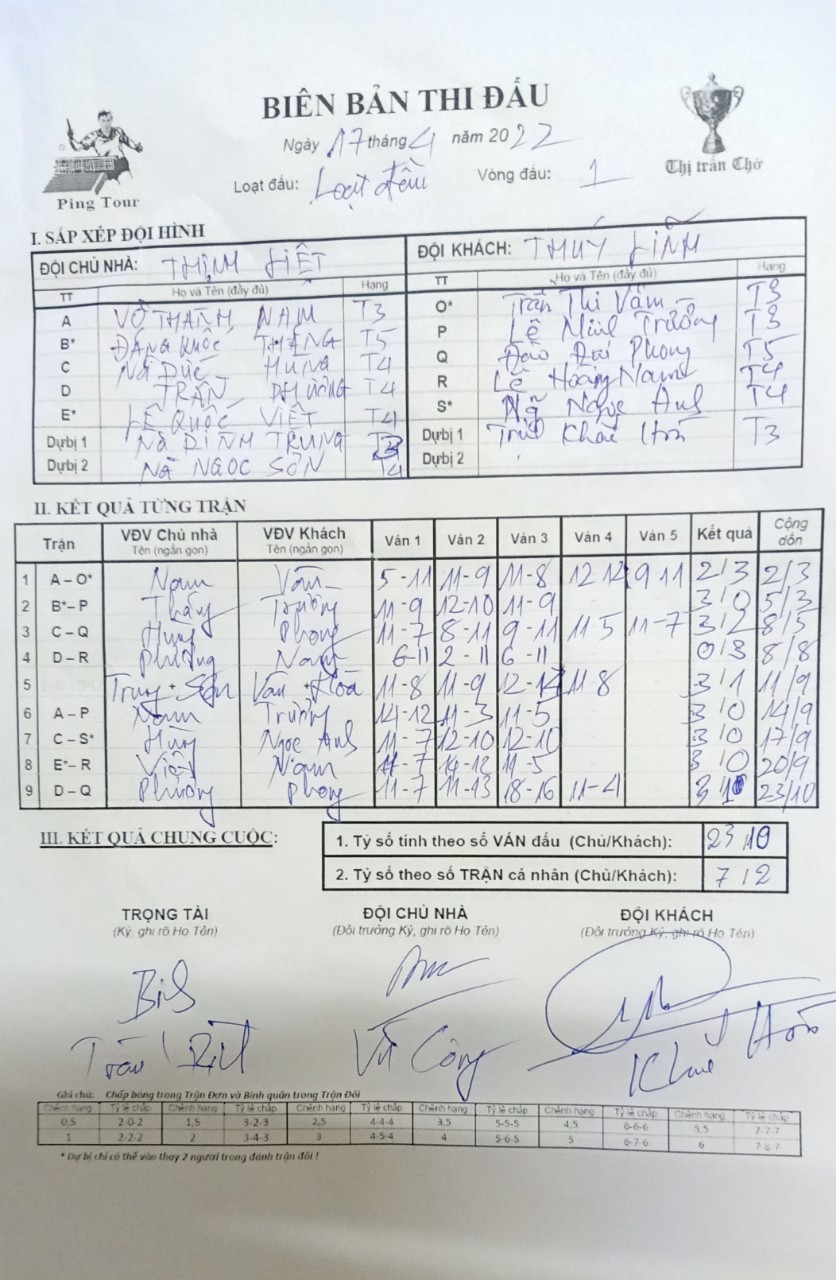 BIÊN BẢN THI ĐẤU
Ngày 17 tháng 4 năm 2022
Loạt đấu: Loạt đầu Vòng đấu: 1
Ping Tour
Thị trấn Chờ
I. SẮP XẾP ĐỘI HÌNH
ĐỘI CHỦ NHÀ: THỊNH LIỆT ĐỘI KHÁCH: THUÝ LĨNH
TT Họ và Tên (đầy đủ) Hạng TT Họ và Tên (đầy đủ) Hạng
A VÕ THANH NAM T3 O* Trần Thi Vâm T3
B* ĐẶNG QUỐC THẮNG T5 P Lê Minh Trưởng T3
C NG ĐỨC HÙNG T4 Q Đào Đại Phong T5
D TRẦN PHƯƠNG T4 R Lê Hoàng Nam T4
E* LÊ QUỐC VIỆT T4 S* Ng Ngọc Anh T4
Dự bị 1 NG ĐÌNH TRUNG T3 Dự bị 1 Khắc Hoà T3
Dự bị 2 NG NGỌC SƠN T4 Dự bị 2
II. KẾT QUẢ TỪNG TRẬN
Trận VĐV Chủ nhà VĐV Khách Ván 1 Ván 2 Ván 3 Ván 4 Ván 5 Kết quả Cộng dồn
Tên (ngắn gọn) Tên (ngắn gọn)
1 A – O* Nam 5-11 11-9 11-8 9 11 2/3 2/3
2 B* – P Thắng Trưởng 11-9 12-10 11-9 3/0 5/3
3 C – Q Hùng Phong 11-7 8-11 9-11 11 5 11-7 3/2 8/5
4 D – R Phương Nam 6-11 2-11 6-11 0/3 8/8
5 Trung + Sơn + Hoà 11-8 11-9 11-8 3/1 11/9
6 A – P Nam Trưởng 14-12 11-3 11-5 3/0 14/9
7 C – S* Hùng Ngọc Anh 11-7 12-10 12-10 3/0 17/9
8 E* – R Việt Nam 11-7 14-12 11-5 3/0 20/9
9 D – Q Phương Phong 11-7 11-13 18-16 11-4 23/10
III. KẾT QUẢ CHUNG CUỘC:
1. Tỷ số tính theo số VÁN đấu (Chủ/Khách): 23/10
2. Tỷ số theo số TRẬN cá nhân (Chủ/Khách): 7/2
TRỌNG TÀI ĐỘI CHỦ NHÀ ĐỘI KHÁCH
(Ký, ghi rõ Họ Tên) (Đội trưởng Ký, ghi rõ Họ Tên) (Đội trưởng Ký, ghi rõ Họ Tên)
Vũ Công Khắc Hoà
Ghi chú: Chấp bóng trong Trận Đơn và Bình quân trong Trận Đôi
Chênh hạng Tỷ lệ chấp Chênh hạng Tỷ lệ chấp Chênh hạng Tỷ lệ chấp Chênh hạng Tỷ lệ chấp Chênh hạng Tỷ lệ chấp Chênh hạng Tỷ lệ chấp
0,5 2-0-2 1,5 3-2-3 2,5 4-4-4 3,5 5-5-5 4,5 6-6-6 5,5 7-7-7
1 2-2-2 2 3-4-3 3 4-5-4 4 5-6-5 5 6-7-6 6 7-8-7
* Dự bị chỉ có thể vào thay 2 người trong đánh trận đôi !